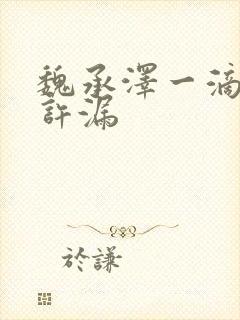 魏承澤一滴
許漏
於謙